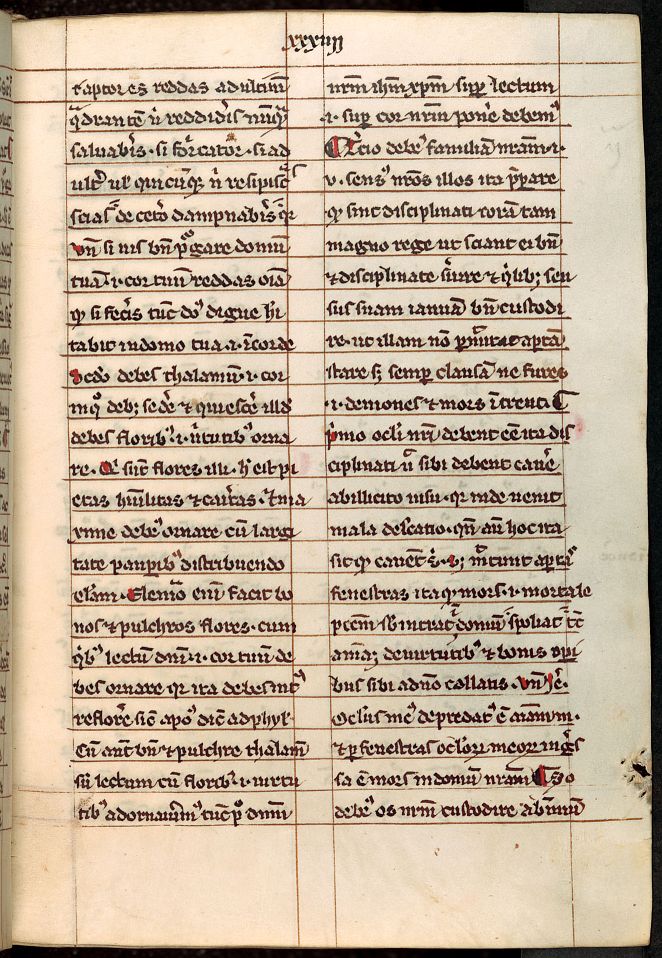 xxxiiij
raptor es reddas ad ultimū
q̄drantē ñ reddid'is nūq̄
saluab'is · si forͥcator · si ad
ult' ul' quicūq; ñ resipisc͛
scias de cet'o dampnab'is
vn̄ si uis bn̄ p̱gare domū
tuā · i · cor tuū reddas oīa
ꝙ si fec'is tūc do⁹ digne hī
tabit in domo tua · i · ī corde
Scd'o debes thalamū · i · cor
in q̊ deb; sed'e ⁊ q'esc'e illd'
debes florib⁹ · i · u'tutib⁹ orna
re · Q' sūt flores illi · h' ē pi
etas hūilitas ⁊ caritas · ⁊ ma
xime debe⁹ ornare cū largi
tate paupib⁹ distribuendo
elām · Elem̄a enī facit bo
nos ⁊ pulchros flores · cum
q'b⁹ lectū dn̄i · i · cor tuū de
bes ornare qr ita debes int'
reflor'e sic̄ apo⁹ dic̄ ad phyl'
Cū aūt bn̄ ⁊ pulchre thalam̄
sū lectum cū florib⁹ · i · uirtu
tib⁹ adornauim⁹ tūc p⁹ dn̄m
nr̄m ih̄m xp̄m sup̱ lectum
· i · sup̱ cor nr̄m pon'e debem⁹
T'cio debe⁹ familiā nr̄am · i ·
v · sens⁹ nr̄os illos ita p̄parare
ꝙ sint disciplinati corā tam
magno rege ut sciant ei bn̄
⁊ disciplinate s'uire ⁊ q'lib; sen
sus suam ianuā bn̄ custodi
re · ut illam nō p̱mittat aptā
stare s; semp̱ clausā ne fures
· i · demones ⁊ mors ītrent ¶
p'mo oc'li nr̄i debent ēē ita dis
ciplinati ut sibi debent cau'e
ab illicito uisu · qr inde uenit
mala delcatio · qn̄ aū hoc ita
sit ꝙ cauent · mittunt aptas
fenestras ita ꝙ mors · i · mortale
pcc̄m sb' intrat domum ⁊ spoliat
aīam; de uirtutib⁹ ⁊ bonis opi
bus sibi a dn̄o collatis · vn̄ Ie' ·
Ocl'us me⁹ depredat⁹ ē aīam m ·
⁊ p̱ fenestras ocl'oꝝ meoꝝ ing'es
sa ē mors in domū nr̄am ¶ S'o
debe⁹ os nr̄m custodire ab